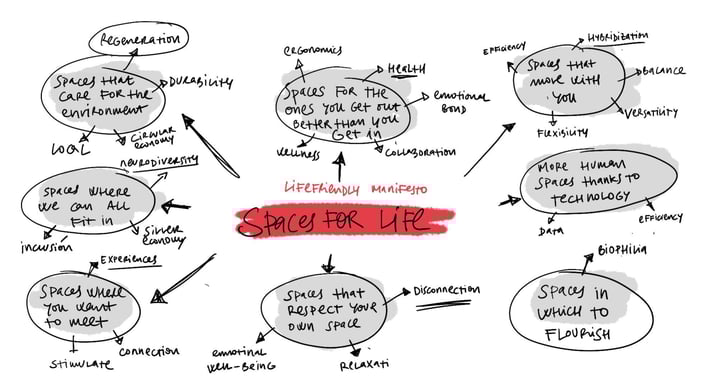 Regeneration
Spaces that
care for the
environment
Durability
Local
Circular
economy
ergonomics
Health
Spaces for the
ones you get out
better than you
get in
emotional
bond
wellness
collaboration
Hybridization
Efficiency
Spaces that
move with
you
Balance
Versatility
Flexibility
neurodiversity
Spaces where
we can all
fit in
inclusión
Silver
economy
Lifefriendly manifesto
Spaces for life
More human
spaces thanks to
technology
Data
efficiency
Experiences
Spaces where
you want
to meet
Stimulate
connection
Spaces that
respect your
own space
Disconnection
emotinal
well-being
Relaxati
Biophilia
Spaces in
which to
flourish